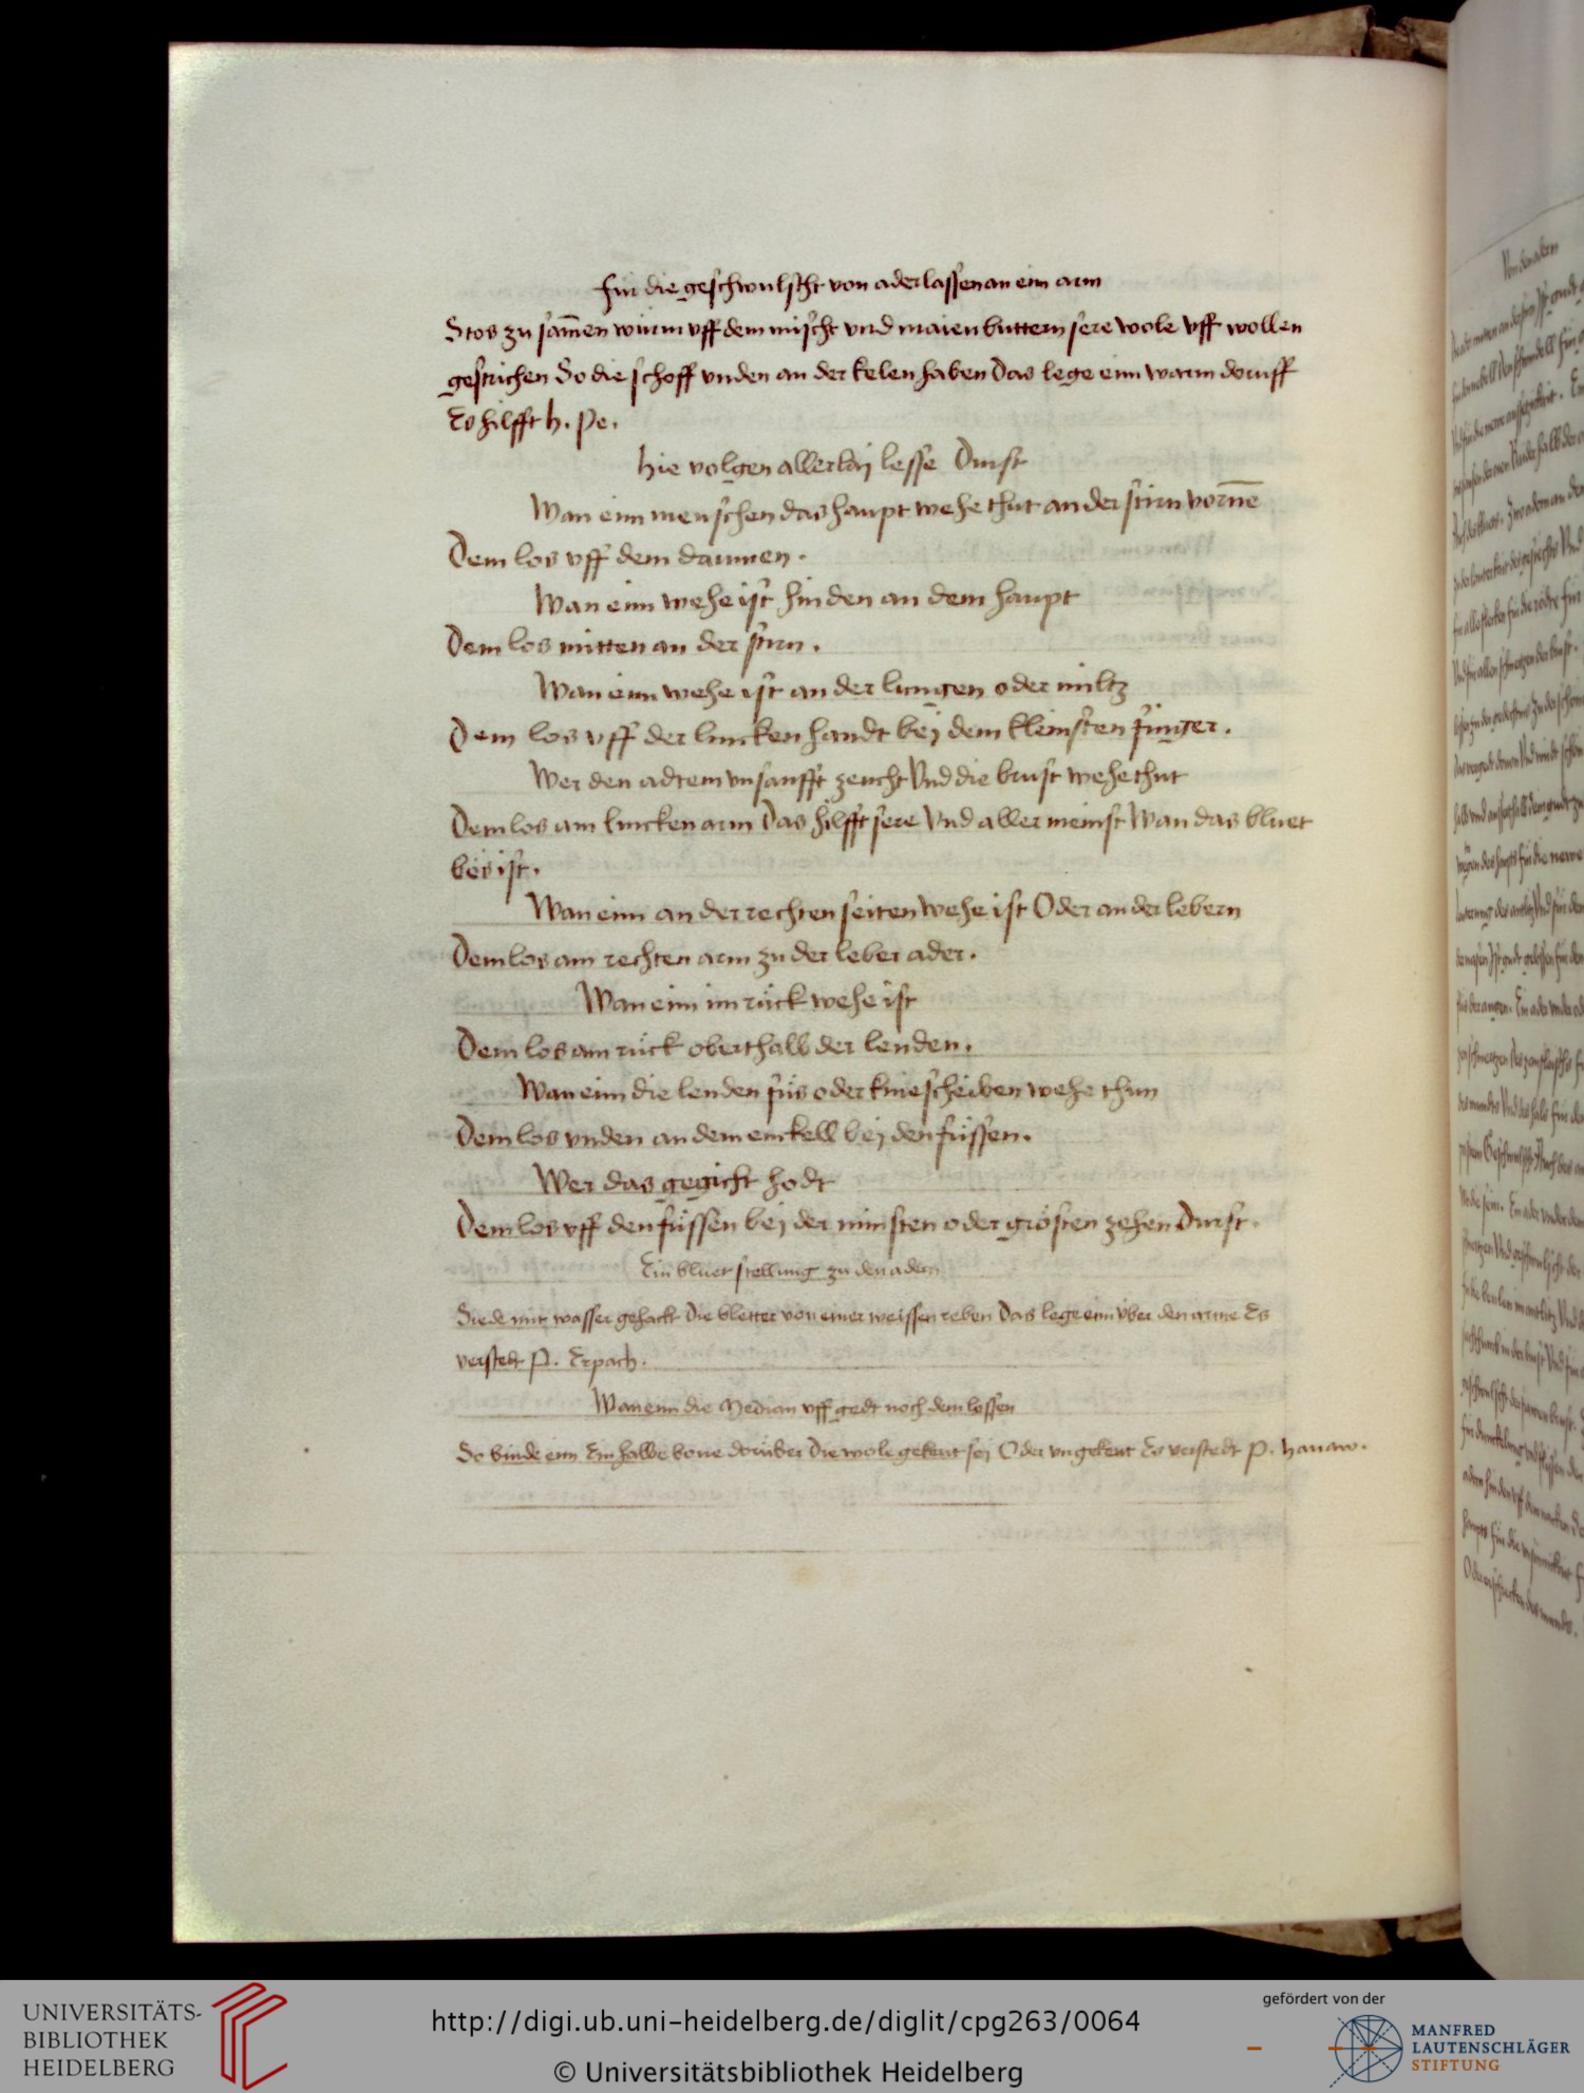 Fur die geschwulscht von aderlassen an eim arm
Stos zu samēn würm uff dem mischt vnd maien buttern sere wole vff wollen
gestrichen So die schoff vnden an der kelen haben Das lege eim warm doruff
Es hilfft h. pe.
Hie volgen allerlaj lesse Durst
Wan eim menschen das haupt wehe thut an der stirn vorn̄e
Dem los vff dem daumen.
Wan eim wehe ist hinden an dem haupt
Dem los mitten an der stirn.
Wan eim wehe ist an der lungen oder miltz
Dem los vff der lincken handt bej dem kleinsten finger.
Wer den adtem vnsanfft zeucht Vnd die brust wehe thut
Dem los am lincken arm Das hilfft sere Vnd aller meinst Wan das bluet
bös ist.
Wan eim an der rechten seiten wehe ist Oder an der lebern
Dem los am rechten arm zu der leber ader.
Wan eim im rück wehe ist
Dem los am rück oberthalb der lenden.
Wan eim die lenden füs oder kniescheiben wehe thun
Dem los vnden an dem enckell bej den füssen.
Wer das gegicht hodt
Dem los vff den füssen bej der minsten oder grösten zehen Durst.
Ein bluet stellung zu den adern
Siede mit wasser gehackt Die bletter von einer weissen reben Das lege eim vber den arme Es
verstedt P. Erpach.
Wan eim die Median vff gedt noch dem lossen
So binde eim Ein halbe bone dorüber Die wole gekeut sej Oder vngekeut Es verstedt P. hanaw.
UNIVERSITÄTS-
BIBLIOTHEK
HEIDELBERG
http://digi.ub.uni-heidelberg.de/diglit/cpg263/0064
© Universitätsbibliothek Heidelberg
gefördert von der
MANFRED
LAUTENSCHLÄGER
STIFTUNG